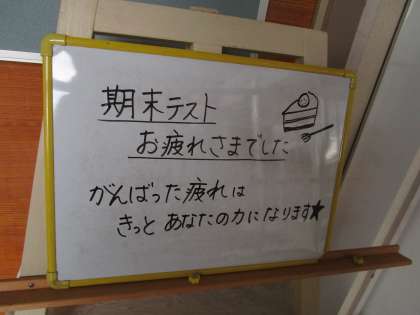 期末テスト
お疲れさまでした
がんばった疲れは
きっとあなたの力になります★